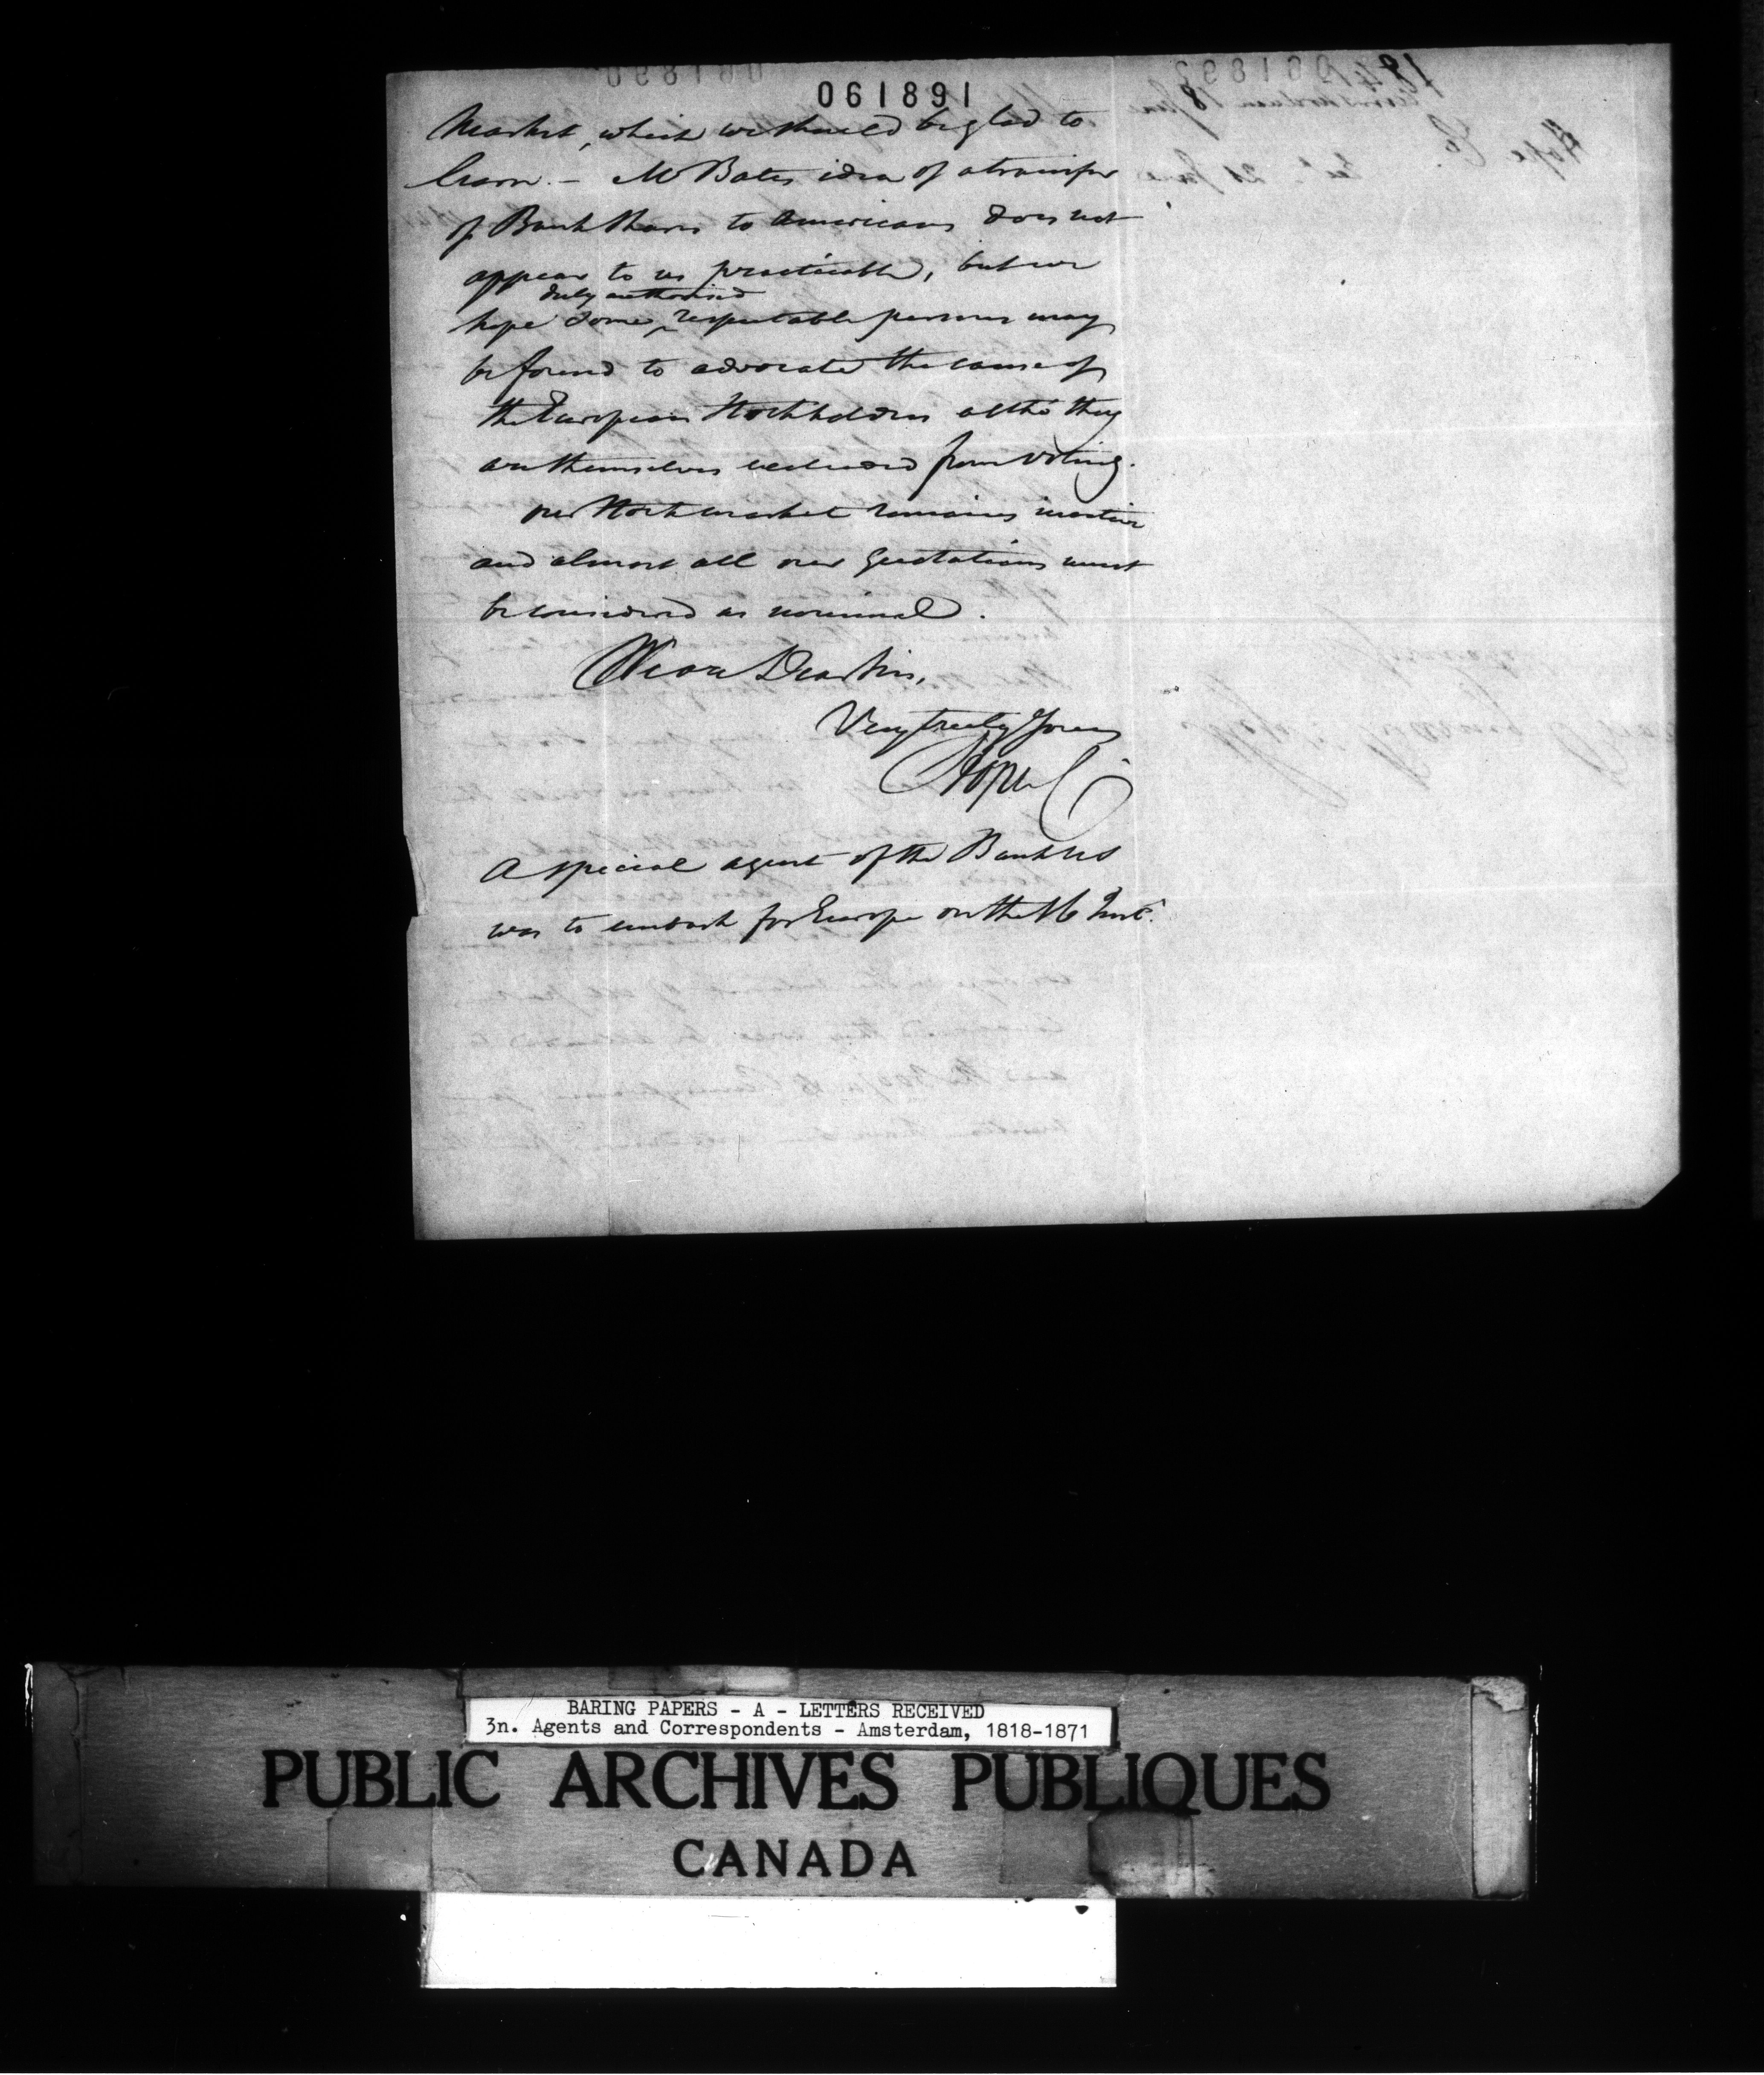 061891
Market, which we should be glad to
learn. – Mr Bates idea of a transfer
of Bank Shares to Americans does not
appear to us practicable, but we
duly authorised
hope some respectable persons may
be found to advocate the cause of
the European Stockholders altho' they
are themselves excluded from voting.
our Stockmarket remains inactive
and almost all our quotations must
be considered as nominal.
We are Dear Sirs,
Very truly Yours
Hope Co
A special agent of the Bank US
was to embark for Europe on the 16 Inst.
BARING PAPERS - A - LETTERS RECEIVED
3n. Agents and Correspondents - Amsterdam, 1818-1871
PUBLIC ARCHIVES PUBLIQUES
CANADA